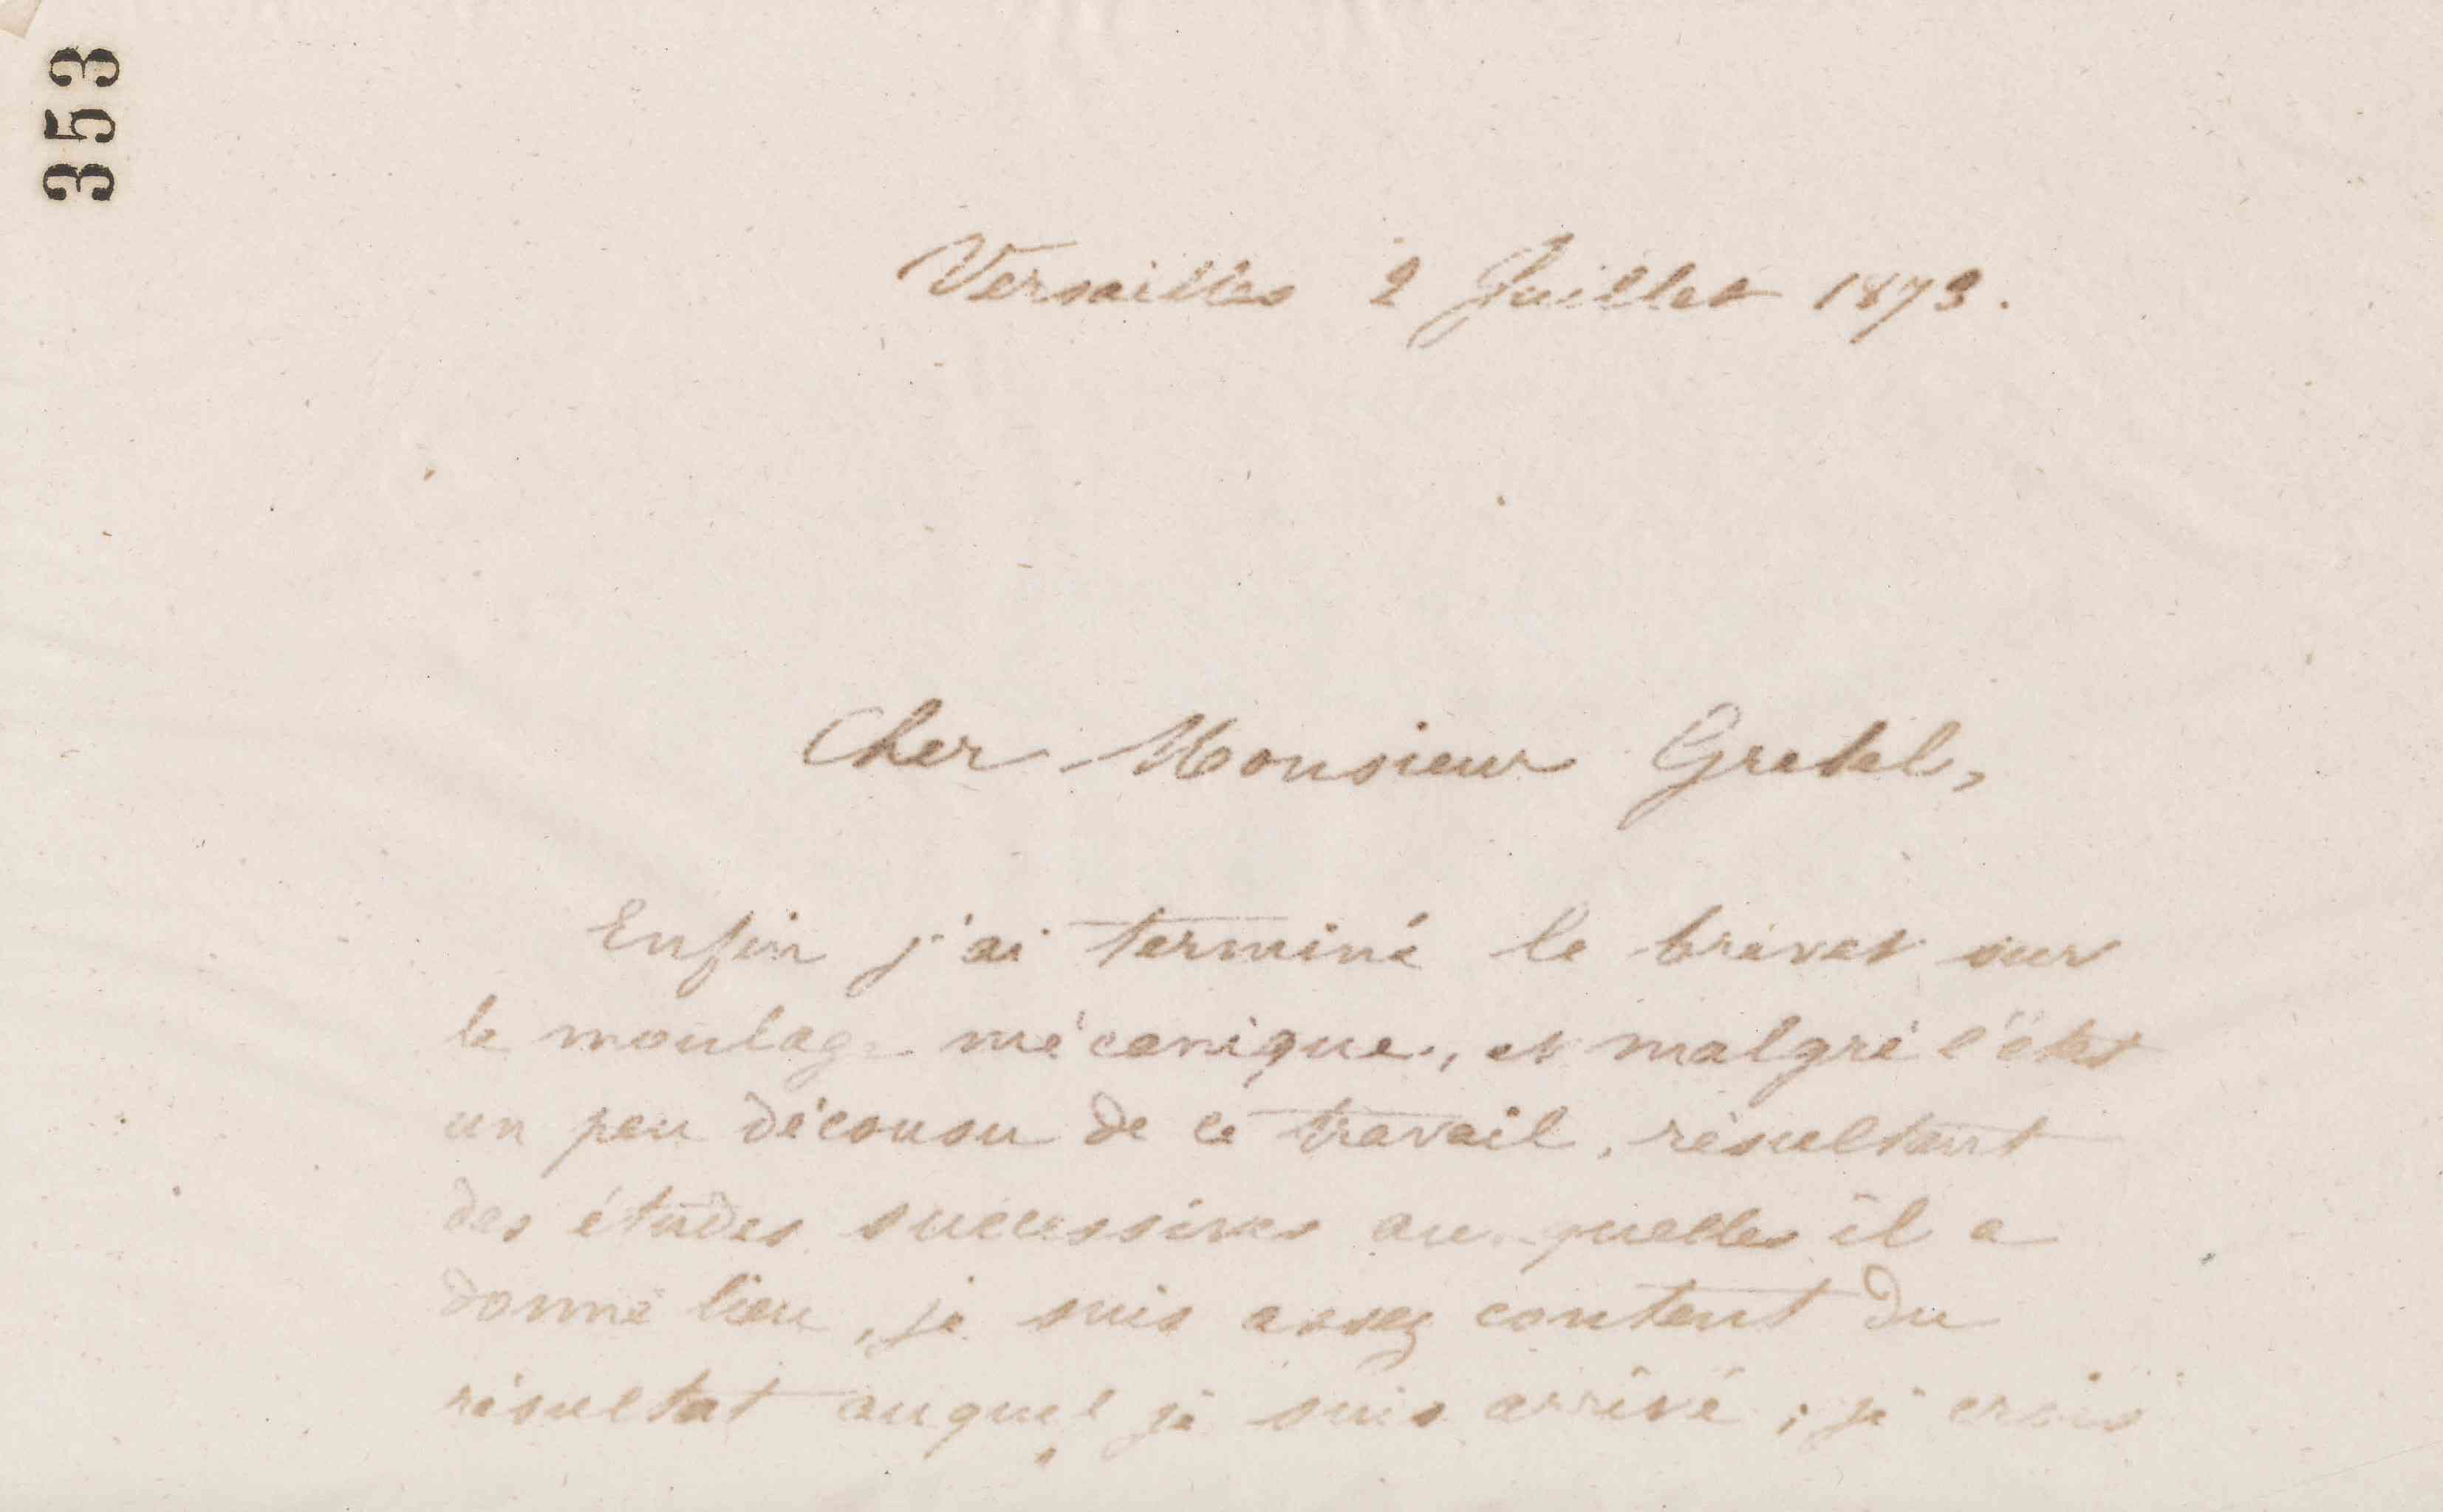 353
Versailles 2 Juillet 1873.
Cher Monsieur Gretel,
Enfin j'ai terminé le brevet sur
le moulage mécanique, et malgré l'état
un peu décousu de ce travail, résultant
des études successives auxquelles il a
donné lieu, je suis assez content du
résultat auquel je suis arrivé ; je crois